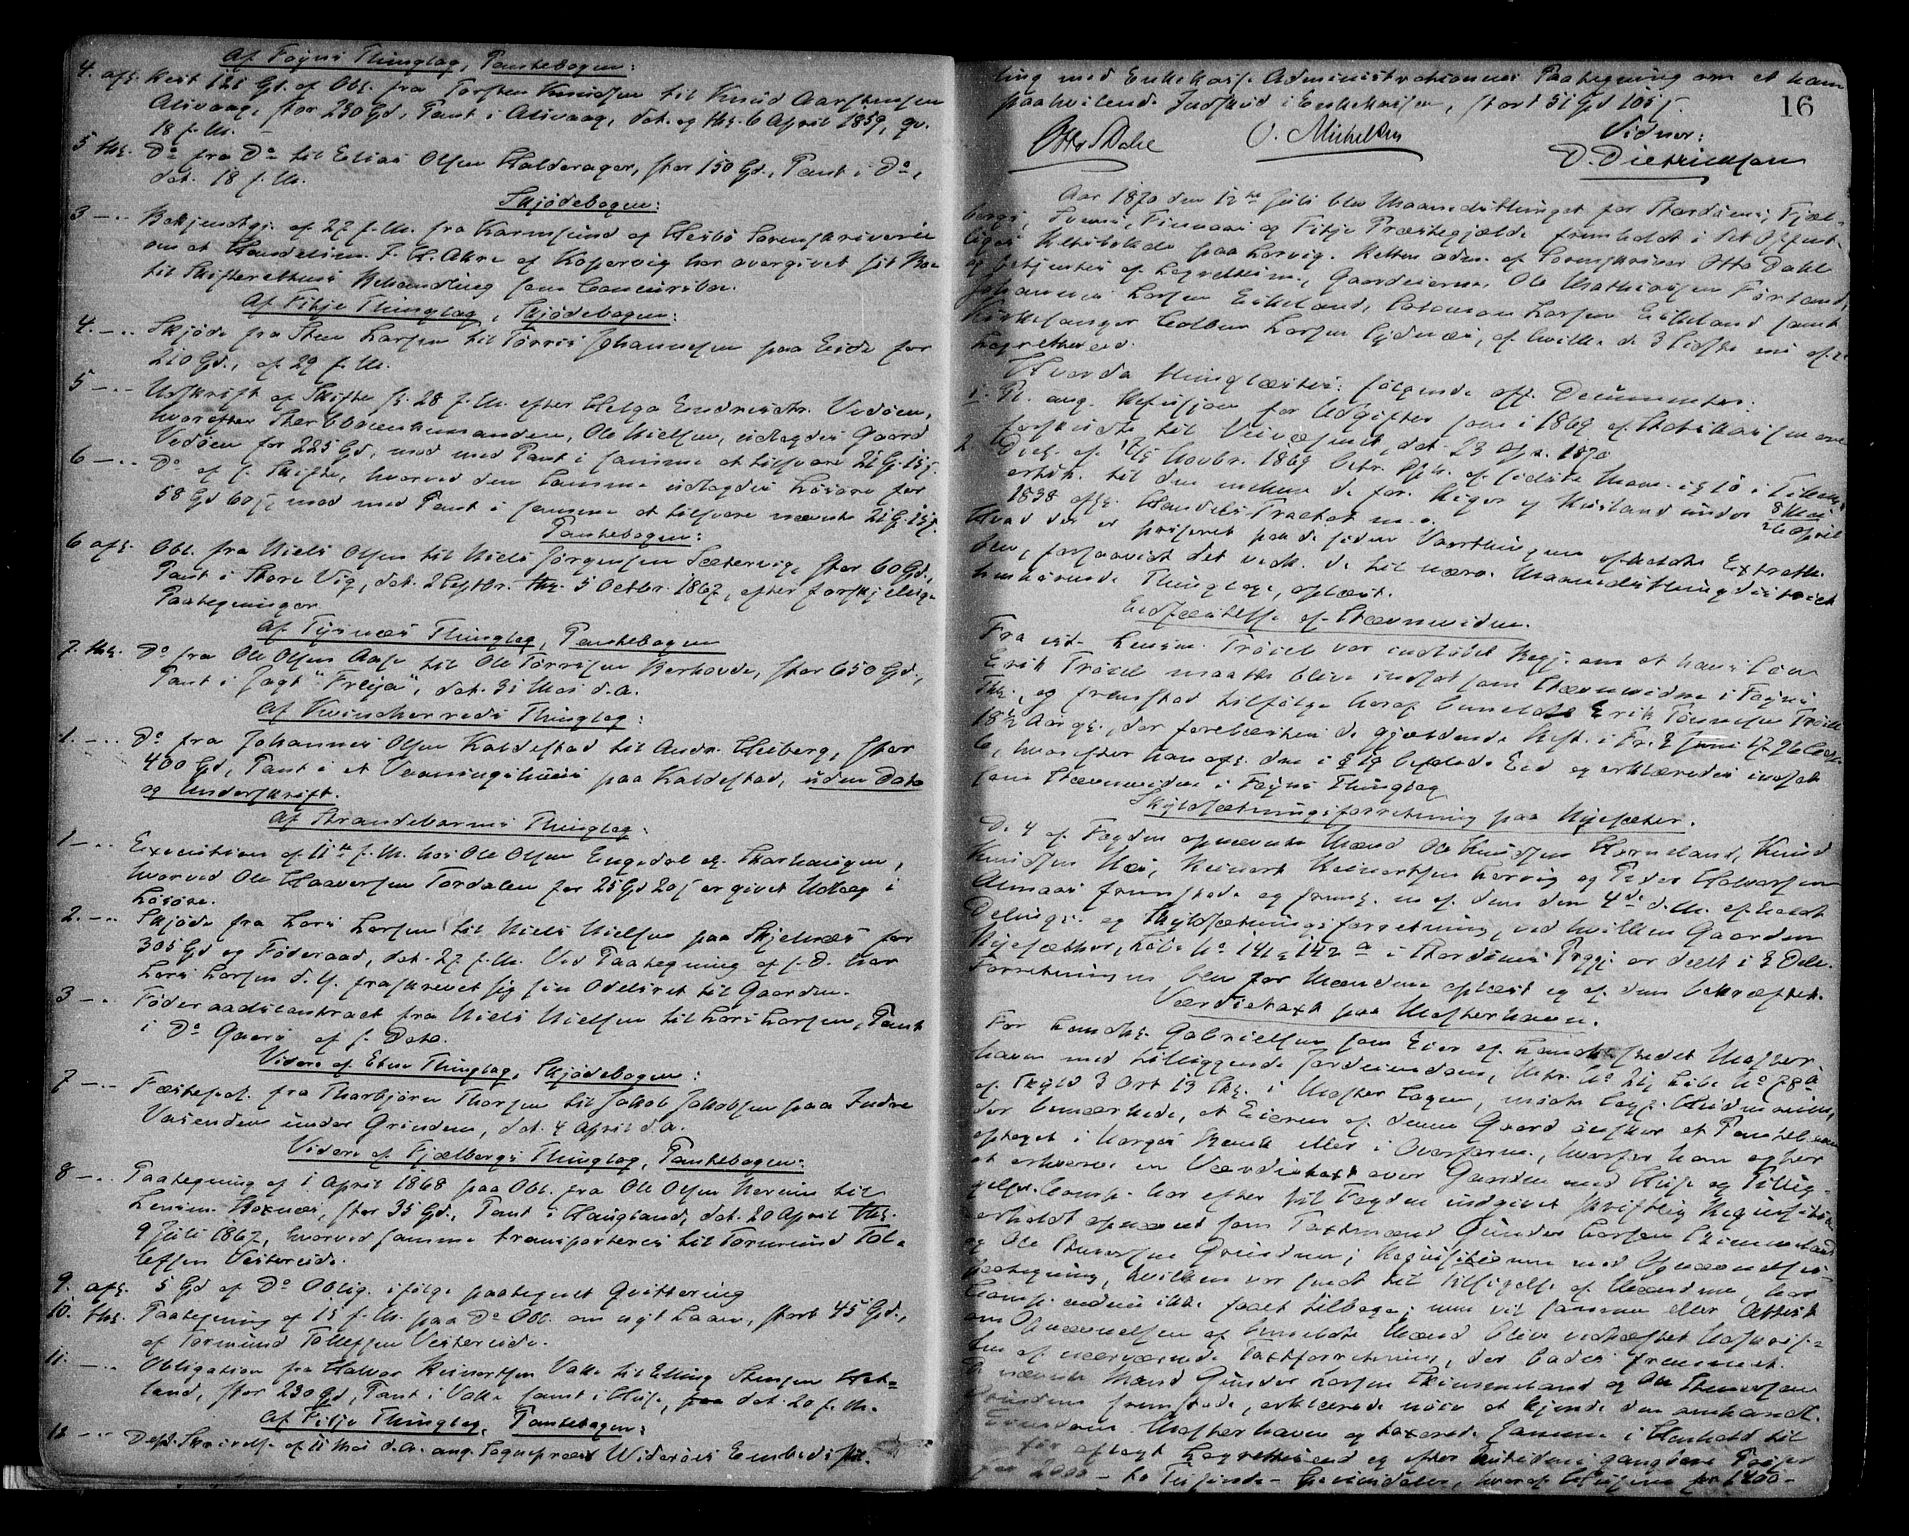 Af Føyns Thinglag, Pantebogen:
4. afl. Rest 125 Gd. af Obl. fra Torsten Knudsen til Knud Aarstensen
Alivaag, stor 230 Gd, Pant i Alivaag, dat. og thl. 6 April 1859, qv.
18 f. M.
5 thl. Do fra Do til Elias Olsen Halderager, stor 150 Gd., Pant i Do,
dat. 18 f. M.
Skjødebogen:
3 –..– Bekjendtgj. af 27 f. M. fra Karmsund og Hesbø Sorenskriveri
om at Handelsm. J. H. Ahre af Kopervig har overgivet sit Bo
til Skifterettens Behandling som Concursbo.
Af Fitje Thinglag, Skjødebogen:
4. –..– Skjøde fra Sten Larsen til Tørris Johannesen paa Eide for
210 Gd., af 29 f. M.
5 –..– Udskrift af Skifte sl. 28 f. M. efter Helga Endresdtr. Vedøen,
hvorefter Sterbboenkemanden, Ole Nielsen, udlagdes Gaard
Vedøen for 225 Gd, mod med Pant i samme at tilsvare
6 –..– Do af f. Skifte, hvorved den samme udlagdes Løsøre for
58 Gd 60 s mod med Pant i samme at tilsvare nævnte
Pantebogen:
6 afl. Obl. fra Niels Olsen til Niels Jørgensen Sætervig, stor 60 Gd.,
Pant i Store Vig, dat. 2 Septbr. thl. 5 Octbr. 1867, efter forskjellige
Paategninger.
Af Tysnæs Thinglag, Pantebogen
7. thl. Do fra Ole Olsen Aase til Ole Tørrisen Berhovde, stor 650 Gd.,
Pant i Jagt "Freija", dat. 31 Mai d. A.
Af Kvindherreds Thinglag:
1. –..– Do fra Johannes Olsen Kaldestad til Andr. Heiberg, stor
400 Gd, Pant i et Vaaningshuus paa Kaldestad, uden Dato
og Underskrift.
Af Strandebarms Thinglag:
1 –..– Execution af 11te f. M. hos Ole Olsen Engedal
hvorved Ole Haaversen Tordalen for 25 Gd 20 s er givet Udlæg i
Løsøre.
2. –..– Skjøde fra Lars Larsen til Niels Nielsen paa Skjelnæs for
305 Gd og Føderaad, dat. 27 f. M. Ved Paategning af s. D. har
Lars Larsen d. Y. fraskrevet sig sin Odelsret til Gaarden.
3 –..– Føderaadscontract fra Niels Nielsen til Lars Larsen, Pant
i Do Gaard af s. Dato.
Videre af Etne Thinglag, Skjødebogen:
7 –..– Fæstesed. fra Thorbjørn Thorsen til Jakob Jakobsen paa Indre
Vasenden under Grinden, dat. 4 April d. A.
Videre af Fjælbergs Thinglag, Pantebogen:
8 –..– Paategning af 1 April 1868 paa Obl. fra Ole Olsen Nerim til
Lensm. Hoxnæs, stor 35 Gd., Pant i Haugland, dat. 20 April thl.
9 Juli 1867, hvorved samme transporteres til Tormund Tol-
lefsen Vestereide.
9. afl. 5 Gd af Do Oblig. ifølge paategnet Qvittering
10. thl. Paategning af 15 f. M. paa Do Obl. om nyt Laan, stort 45 Gd.,
af Tormund Tollefsen Vestereide.
11. –..– Obligation fra Halvor Reinertsen Valle til Elling Stensen Het-
land, stor 230 Gd, Pant i Valle samt i Huse, dat. 20 f. M.
Af Fitje Thinglag, Pantebogen:
12 –..– Dept. Skrivelse af 11 Mai d. A. ang. Sognepræst Widerøes Embeds
ling med Enkekasse Administrationens Paategning om et ham
paahvilende Indskud i Enkekassen, stort 51 Gd 105 s.
16
Otto Dahl O. Michelsen Vidner:
D. Dietrichsen
Aar 1870 den 12te Juli blev Maanedsthinget for Stordøens, Fjæl-
bergs, Sveens, Finnaas og Fitje Præstegjælde fremholdt i det offent-
lige Retslokale paa Lervig. Retten adm. af Sorenskriver Otto Dahl
og betjentes af Lagrettesm., Gaardeierne Ole Mathiesen Førland,
Johannes Larsen Eikeland, Salamon Larsen Eikeland samt
Kirkesanger Colben Larsen Sydnæs, af hvilke de 3 sidste nu afl.
Lagretteseed.
Hvorda thinglæstes følgende off. Documenter:
1. Pl. ang. Refusjon for Udgifter som i 1869 af Statskassen ere
forskudte til Veivæsenet, dat. 23 Apr. 1870
2. Decl. af 17/5 Novbr. 1869 betr. Oph. af sidste Mom. i § 10 i Tillægs
artik. til den mellem de for. Riger og Rusland under 8 Mai/26 April
1838 afsl. Handels Tractat m. v.
Hvad der er passeret paa de siden Vaarthingene afholdte Extrath.
blev, forsaavidt det vedk. de til nærv. Maanedsthingdistrict
henhørende Thinglage, oplæst.
Eedfæstelse af Stævnevidne.
Fra cst. Lensm. Trøeel var indløbet Begj. om at hans Søn
Erik Trøeel maatte blive indsat som Stævnevidne i Føyns
Thl., og fremstod tilfølge heraf bemeldte Erik Tønnesen Trøeel
18½ Aar gl., der forelæstes de gjældende Rest. i Fr. 2 Juni
6, hvorefter han afl. den i § 19 befalede Eed og erklæredes indsat
som Stævnevidne i Føyns Thinglag
Skyldsætningsforretning paa Nysæter.
De 4 af Fogden opnævnte Mænd Ole Knudsen Horneland, Knud
Knudsen Næs, Reinert Reinertsen Lervig og Peder Halvorsen
Almaas fremstode og freml. en af dem den 4de d. M. afholdt
Delings- og Skyldsætningsforretning, ved hvilken Gaarden
Nysæther, Løbe No 141 & 142 a i Stordøens Prgj. er deelt i 2 Dele.
Forretningen blev for Mændene oplæst og af dem bekræftet.
Værdietaxt paa Mosterhavn.
For Landhl. Gabrielsen som Eier af Landhandelstedet Moster-
havn med tilliggende Jordeiendom, Matr. No 21, Løbe No 78 a
af Skyld 3 Ort 13 Skl. i Moster Sogn, mødte
der bemærkede, at Eieren af denne Gaard ønsker et Pantelaan
optaget i Norges Bank eller i Overform., hvorfor han agter
at erhverve en Værdietaxt over Gaarden med Huse og Tillig-
gelse. Comp. har efter til Fogden indgivet skriftlig Requisition
erholdt opnævnt som Taxtmænd Gunder Larsen Grimmeland
og Ole Thuresen Grinden; Requisitionen med Opnævnelses-
paategning, hvilken var sendt til Tilsigelse af Mændene, har
Comp. endnu ikke faaet tilbage; men vil samme eller Attest
om Opnævnelsen af bemeldte Mænd blive vedhæftet Udskrif-
ten af nærværende Taxtforretning, der bades fremmet.
De nævnte Mænd Gunder Larsen Grimmeland og Ole Thuresen
Grinden fremstode, erklærede nøie at kjende den omhandl.
Eiendom Mosterhavn og taxerede samme i Henhold til
før aflagt Lagretteseed og efter Nutidens gangbare Priser
for 2000 – to Tusinde – Speciedaler, hvoraf Husene for 1400 –